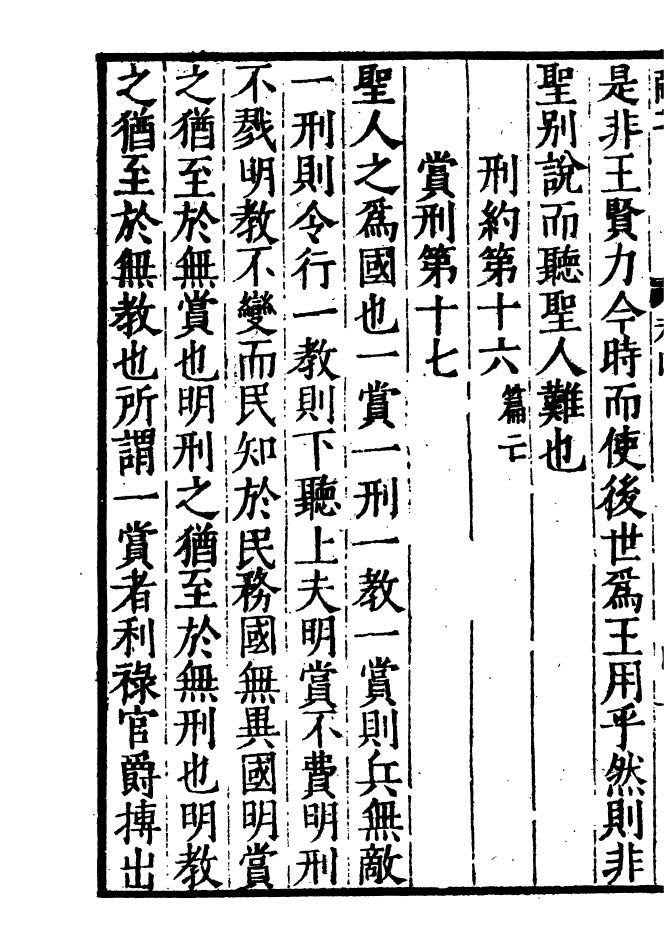 是非王賢力今時而使後世爲王用乎然則非
聖别說而聽聖人難也
刑約第十六 篇亡
賞刑第十七
聖人之爲國也一賞一刑一教一賞則兵無敵
一刑則令行一教則下聽上夫明賞不費明刑
不戮明教不變而民知於民務國無異國明賞
之猶至於無賞也明刑之猶至於無刑也明教
之猶至於無教也所謂一賞者利祿官爵摶出